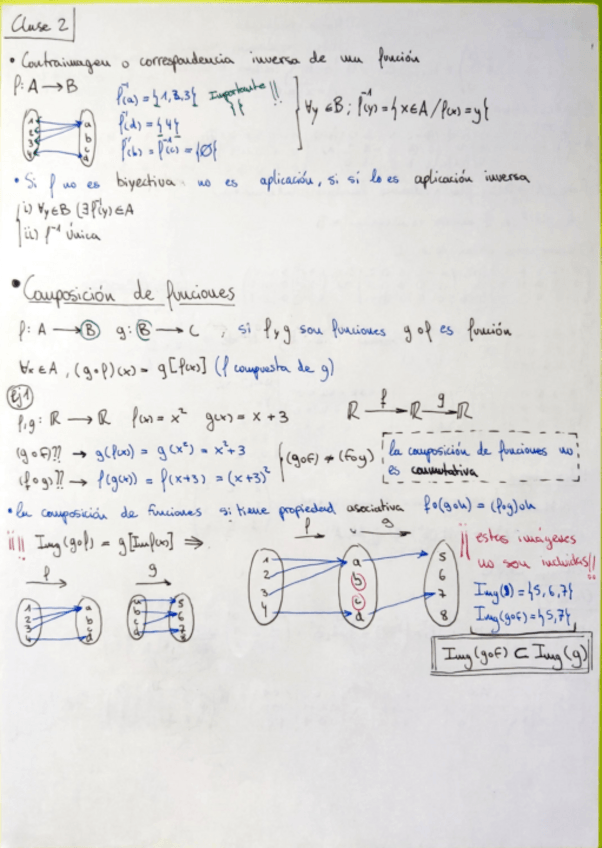 Clase 2
• Contraimagen o correspondencia inversa de una función
f: A → B
1 2 3 4 a b c d
f⁻¹(a) = {1,2,3} Importante!!
f⁻¹(d) = {4}
f⁻¹(b) = f⁻¹(c) = {∅}
∀y ∈ B; f⁻¹(y) = {x ∈ A / f(x) = y}
• Si f no es biyectiva no es aplicación, si sí lo es aplicación inversa
i) ∀y ∈ B (∃ f⁻¹(y) ∈ A
ii) f⁻¹ única
• Composición de funciones
f: A → B g: B → C , si f y g son funciones g o f es función
∀x ∈ A, (g∘f)(x) = g[f(x)] (f compuesta de g)
Ej 1
f,g: ℝ → ℝ f(x) = x² g(x) = x + 3
ℝ f→ ℝ g→ ℝ
(g∘f)?? → g(f(x)) = g(x²) = x²+3
(f∘g)?? → f(g(x)) = f(x+3) = (x+3)²
(g∘f) ≠ (f∘g)
la composición de funciones no
es conmutativa
• La composición de funciones si tiene propiedad asociativa f∘(g∘h) = (f∘g)∘h
¡¡!! Img(g∘f) = g[Imf(x)] ⇒
f g
1 2 3 4 a b c d
a b c d 5 6 7 8
f g
1 2 3 4 a b c d 5 6 7 8
¡¡ estas imágenes
no son incluidas!!
Img(g) = {5,6,7}
Img(g∘f) = {5,7}
Img(g∘f) ⊂ Img(g)